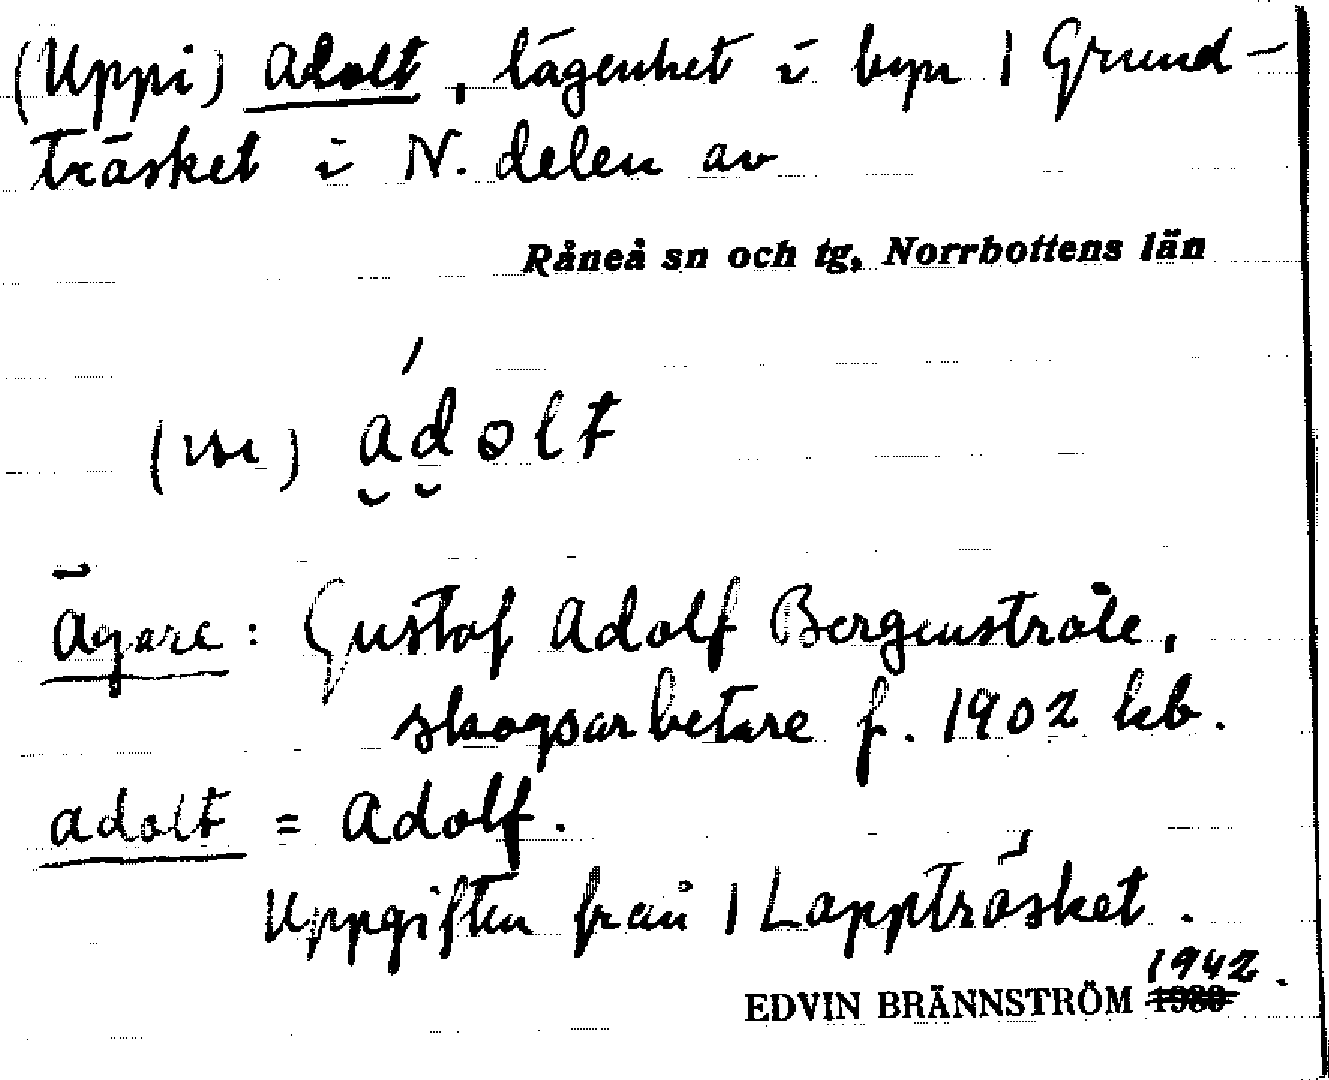 (Uppi) Adolt, lägenhet i byn 1 Grund-
träsket i N. delen av
Råneå sn och tg, Norrbottens län
adolt
Ägare: Gustaf Adolf Bergenstråle,
skogsarbetare f. 1902 kb.
adolt = Adolf.
Uppgiften från 1 Lappträsket.
1942.
EDVIN BRÄNNSTRÖM 1930